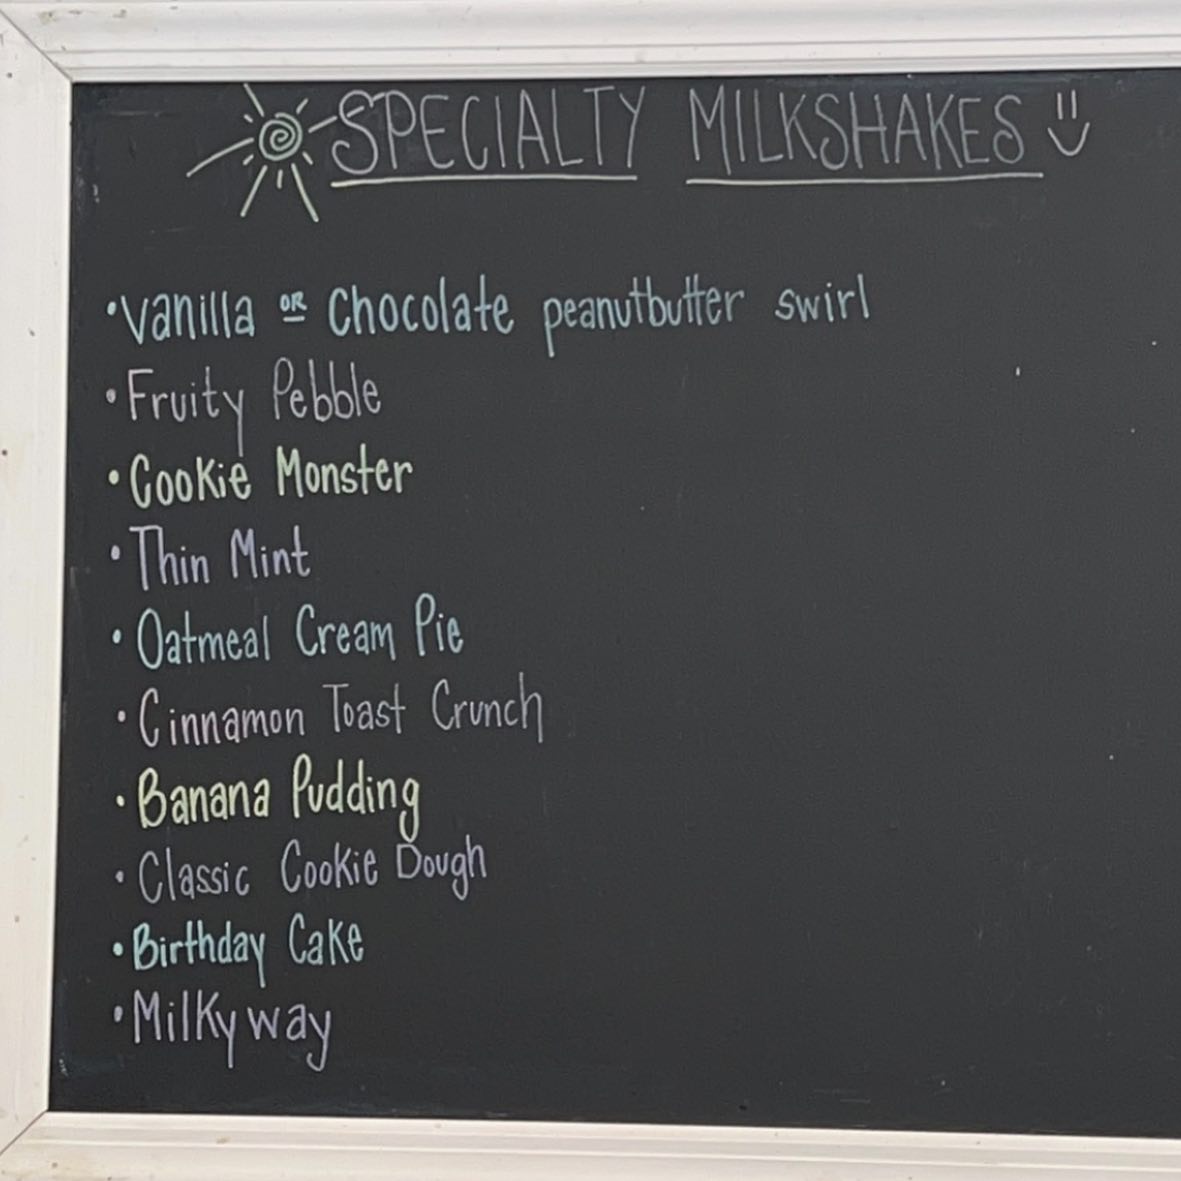 SPECIALTY MILKSHAKES
• Vanilla OR Chocolate peanutbutter swirl
• Fruity Pebble
• Cookie Monster
• Thin Mint
• Oatmeal Cream Pie
• Cinnamon Toast Crunch
• Banana Pudding
• Classic Cookie Dough
• Birthday Cake
• Milkyway